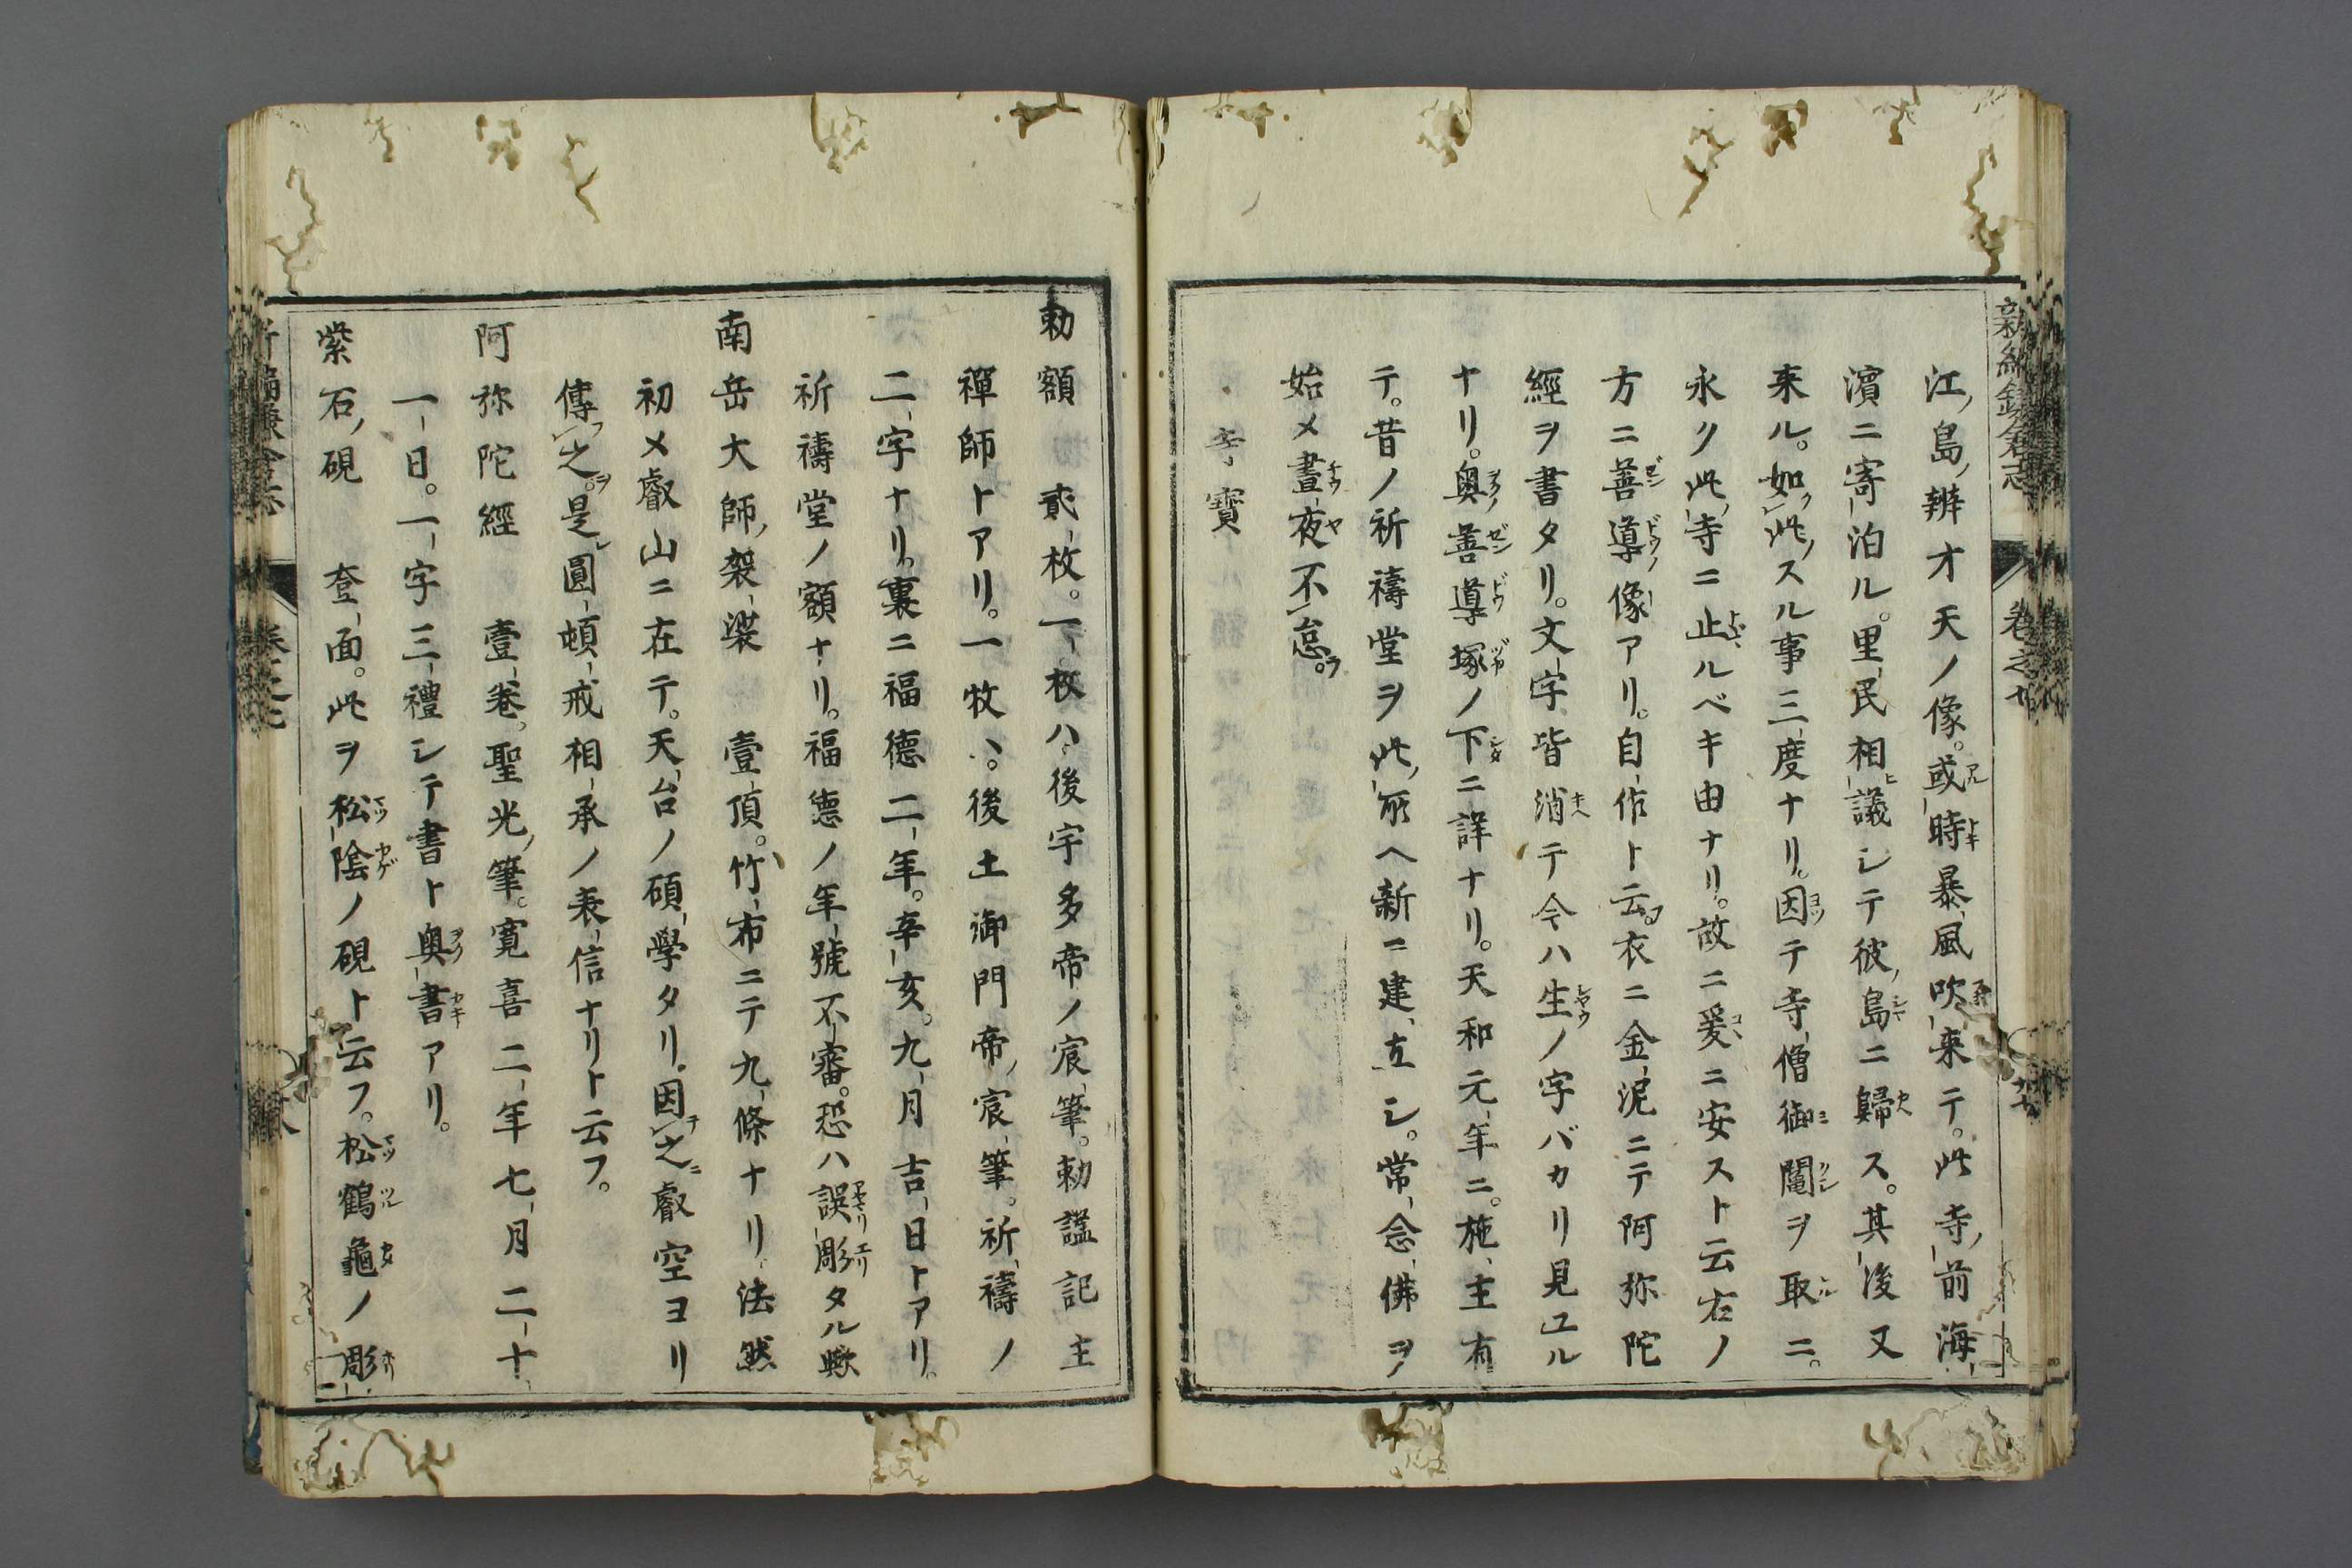 新編鎌倉志 卷之七
江ノ島ノ辨才天ノ像。或時暴風吹來テ。此寺ノ前海
濵ニ寄泊ル。里民相議シテ彼島ニ歸ス。其後又
來ル。如此ノスル事三度ナリ。因テ寺僧御鬮ヲ取ニ。
永ク此寺ニ止ルベキ由ナリ。故ニ爰ニ安スト云右ノ
方ニ善導ノ像アリ。自作ト云。衣ニ金泥ニテ阿弥陀
經ヲ書タリ。文字皆消テ今ハ生ノ字バカリ見ユル
ナリ。奥ノ善導塚ノ下ニ詳ナリ。天和元年ニ。施主有
テ。昔ノ祈禱堂ヲ此所ヘ新ニ建立シ。常念佛ヲ
始メ晝夜不怠。
寺寶
勅額 貳枚。一枚ハ後宇多帝ノ宸筆。勅謚記主
禪師トアリ。一牧ハ。後土御門帝ノ宸筆。祈禱ノ
二字ナリ。裏ニ福德二年。辛亥。九月吉日トアリ。
祈禱堂ノ額ナリ。福德ノ年號不審。恐ハ誤彫タル歟
南岳大師ノ袈裟 壹頂。竹布ニテ九條ナリ。法然
初メ叡山ニ在テ。天台ノ碩學タリ。因之叡空ヨリ
傳之。是圓頓戒相承ノ表信ナリト云フ。
阿弥陀經 壹卷。聖光ノ筆。寛喜二年七月二十
一日。一字三禮シテ書ト奥書アリ。
紫石ノ硯 壹面。此ヲ松陰ノ硯ト云フ。松鶴龜ノ彫